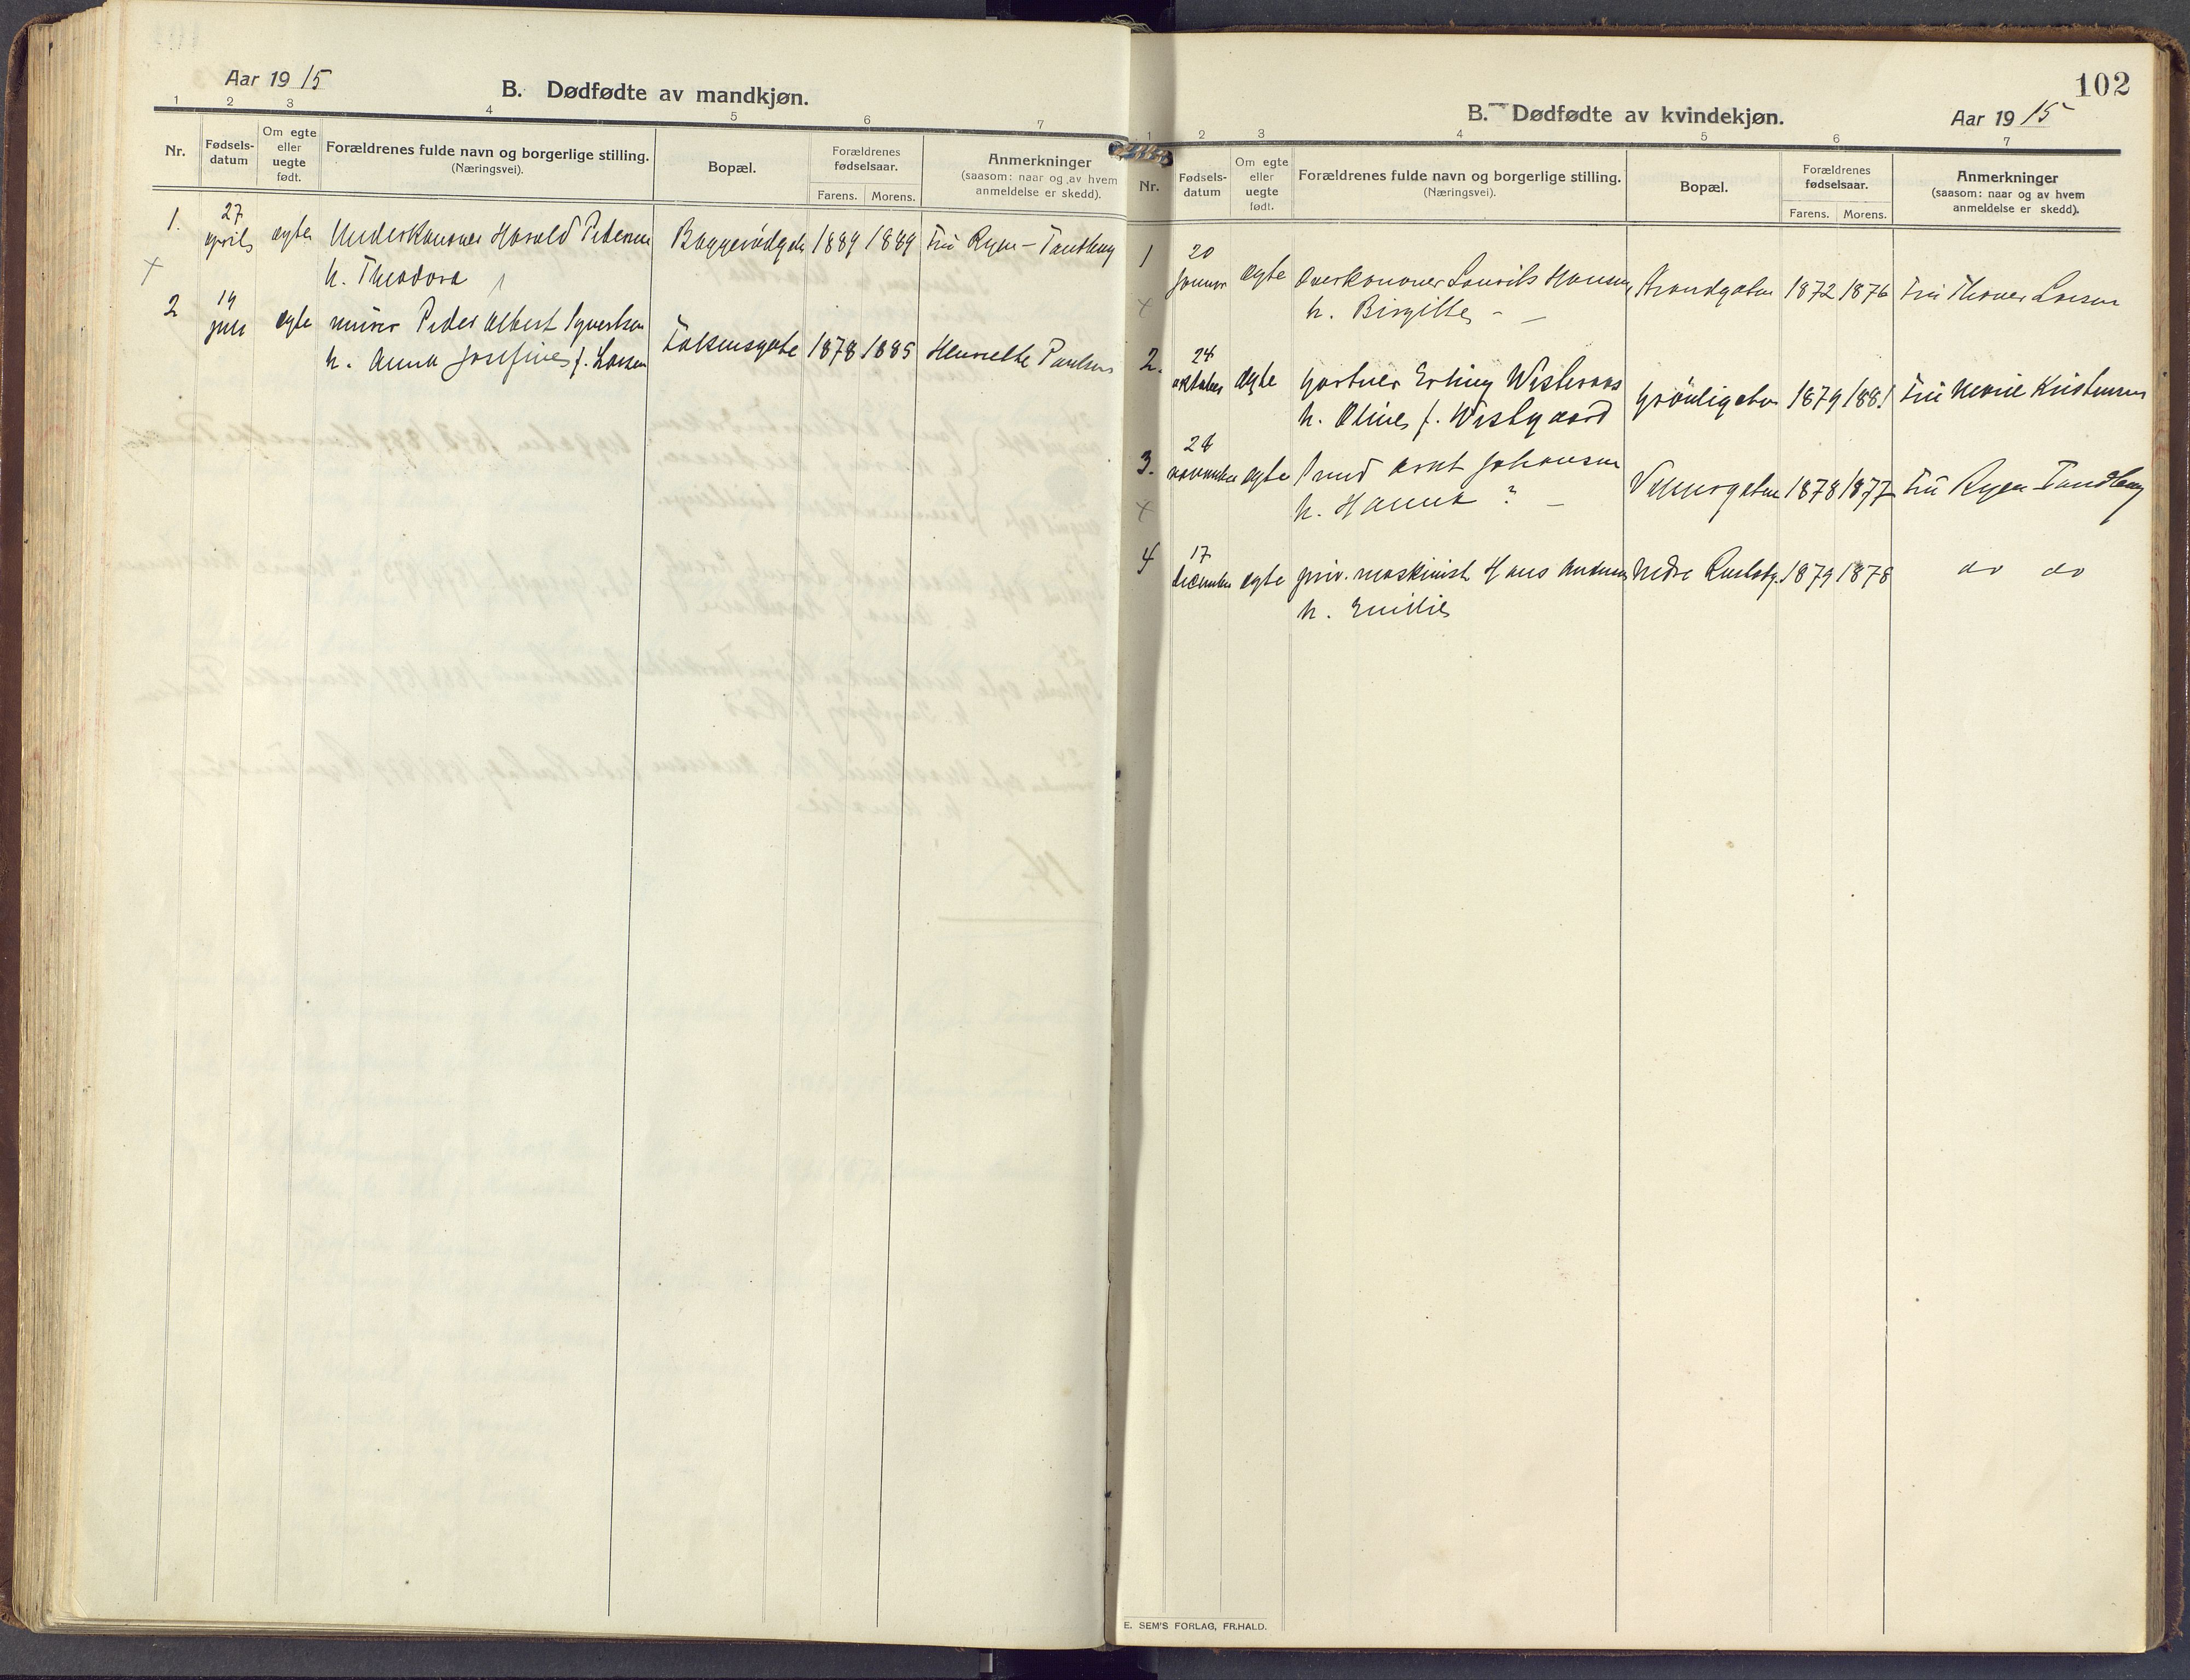 Aar 1915
B. Dødfødte av mandkjøn.
1 2 3 4 5 6 7
Nr. Fødsels-datum Om egte eller uegte født. Forældrenes fulde navn og borgerlige stilling. (Næringsvei). Bopæl. Forældrenes fødselsaar. Farens. Morens. Anmerkninger (saasom: naar og av hvem anmeldelse er skedd).
1. 27 april egte Underkanoner Harald Pedersen 1889 1889 Fru Ryen-Tandberg
h. Theodora
2 14 juli egte murer Peder Albert Syvertsen Falsensgate 1878 1885 Henriette Paulsen
h. Anna Josefine f. Larsen
102
B. Dødfødte av kvindekjøn.
Aar 1915
1 2 3 4 5 6 7
Nr. Fødsels-datum Om egte eller uegte født. Forældrenes fulde navn og borgerlige stilling. (Næringsvei). Bopæl. Forældrenes fødselsaar. Farens. Morens. Anmerkninger (saasom: naar og av hvem anmeldelse er skedd).
1 20 januar egte Overkanoner Laurits Hansen Strandgaten 1872 1876 Fru Larsen
h. Birgitte - -
2. oktober egte gartner Erling 1879 1881 Fru Marie Kristensen
h. Oline f. Westgaard
3. november egte Arnt Johansen 1878 1877 Fru Ryen Tandberg
h. Hanna ? -
4 17 december egte priv. maskinist Hans Andersen Nedre 1879 1878 do do
h. Emilie
E. SEM'S FORLAG, FR.HALD.